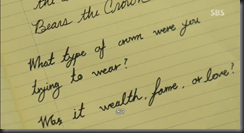 the
Bears the Crown
What type of crown were you
trying to wear?
Was it wealth, fame, or love?
SBS